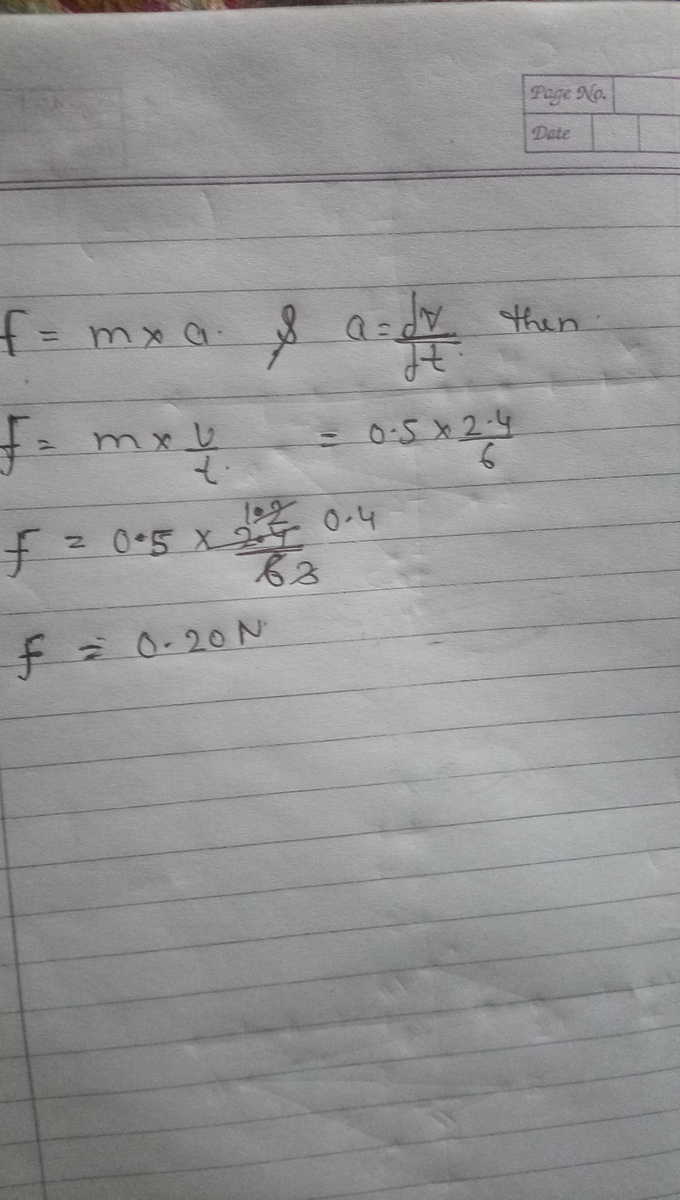 Page No.
Date
f = m x a. & a = dv/dt. then
f = m x v/t. = 0.5 x 2.4/6
f = 0.5 x 2.4/6 1.2 3 0.4
f = 0.20 N